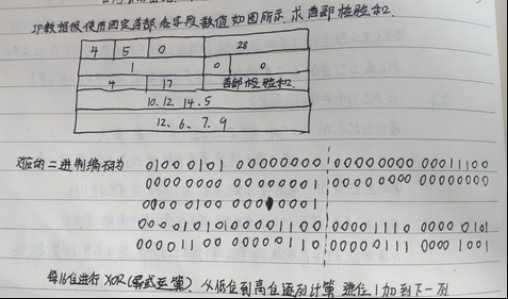 IP数据报使用固定首部各字段数值如图所示.求首部检验和.
4 5 0 28
1 0 0
4 17 首部检验和
10.12.14.5
12.6.7.9
对应的二进制编码为 01000101 00000000 00000000 00011100
00000000 00000001 00000000 00000000
00000100 00010001
00001010 00001100 00001110 00000101
00001100 00000110 00000111 00001001
每16位进行XOR(异或运算). 从低位到高位逐列计算 进位1加到下一列